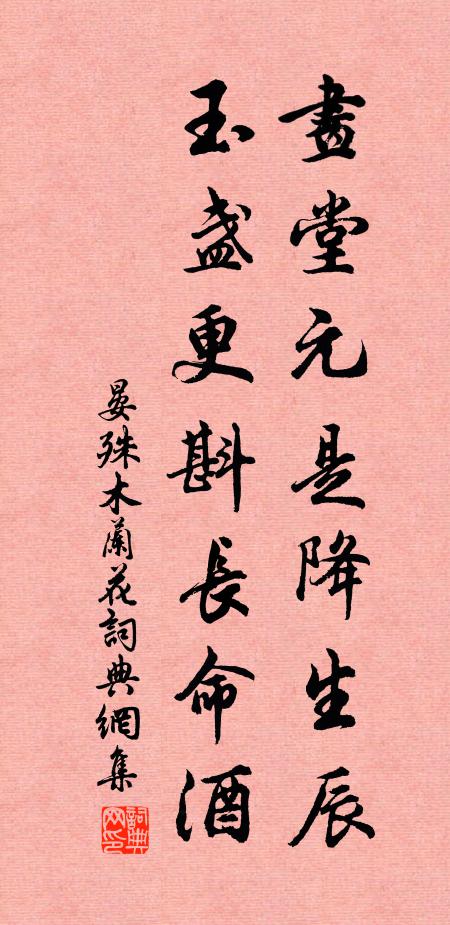 畫堂元是降生辰
玉盞更斟長命酒
晏殊木蘭花詞典網集
詞典網印